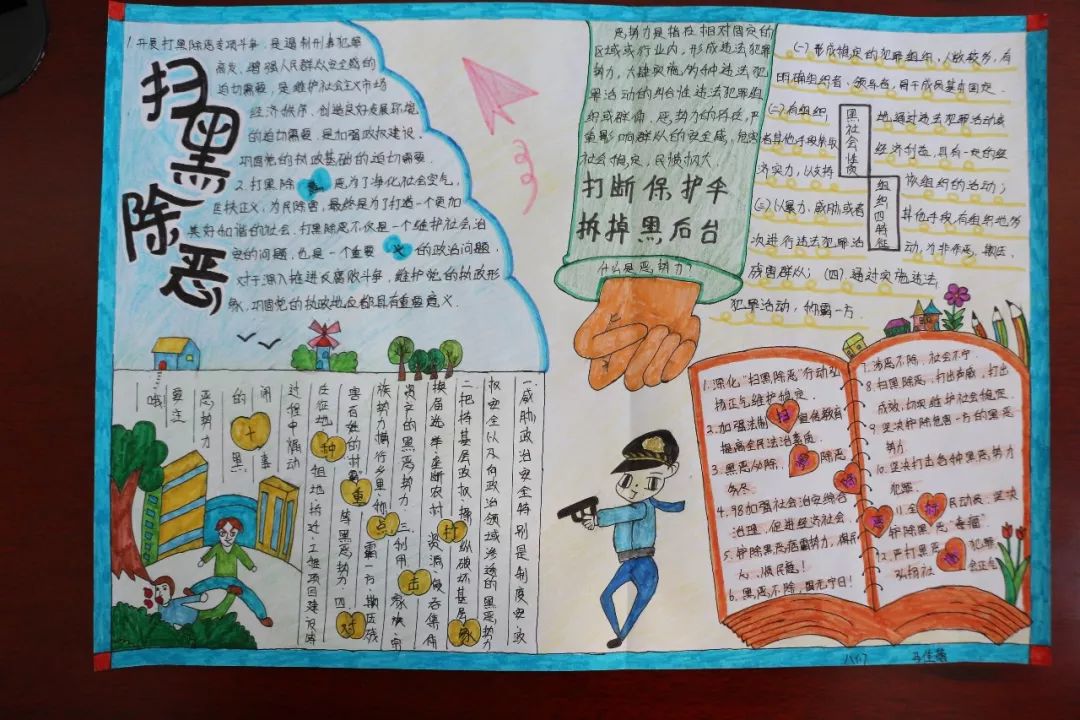 扫黑除恶
1.开展打黑除恶专项斗争,是遏制刑事犯罪
高发、增强人民群众安全感的
迫切需要,是维护社会主义市场
经济秩序、创造良好发展环境
的迫切需要,是加强政权建设、
巩固党的执政基础的迫切需要.
2.打黑除恶为了净化社会空气,
匡扶正义,为民除害,最终是为了打造一个更加
美好和谐的社会.打黑除恶不仅是一个维护社会治
安的问题,也是一个重要的政治问题.
对于深入推进反腐败斗争,维护党的执政形
象,巩固党的执政地位都具有重要意义.
恶势力是指在相对固定的
区域或行业内,形成违法犯罪
势力,大肆实施的各种违法犯
罪活动的纠合性违法犯罪组
织或群体.恶势力的存在,严
重影响群众的安全感,危害
社会稳定,民愤极大.
打断保护伞
拆掉黑后台
什么是恶势力?
黑社会性质
组织四特征
(一)形成稳定的犯罪组织,人数较多,有
明确组织者、领导者,骨干成员基本固定.
(二)有组织地通过违法犯罪活动或
者其他手段获取经济利益,具有一定的经
济实力,以支持该组织的活动;
(三)以暴力、威胁或者其他手段,有组织地多
次进行违法犯罪活动,为非作恶、欺压、
残害群众;(四)通过实施违法
犯罪活动,称霸一方.
一.威胁政治安全特别是制度安
权安全以及向政治领域渗透的黑恶势力
二.把持基层政权、操纵破坏基层
换届选举、垄断农村资源、侵吞集体
资产的黑恶势力 三.利用家族、宗
族势力横行乡里、称霸一方、欺压残
害百姓的“村霸”等黑恶势力.四.
在征地、租地、拆迁、工程项目建设等
过程中煽动
闹事
的黑
恶势力
要注
哦
十
种
重
点
打
击
对
象
1.深化“扫黑除恶”行动弘
扬正气维护稳定.
2.加强法制宣传教育
提高全民法治素质.
3.黑恶必除,除恶
务尽.
4.加强社会治安综合
治理,促进经济社会
5.铲除黑恶痞霸势力,
6.黑恶不除,国无宁日!
7.涉恶不除,社会不宁.
8.扫黑除恶,打出声威,打出
成效,切实维护社会稳定.
9.坚决铲除危害一方的黑恶
势力.
10.坚决打击各种黑恶势力
犯罪.
11.全民动员,坚决
铲除黑恶“毒瘤”
12.严打黑恶犯罪,
弘扬社会正气